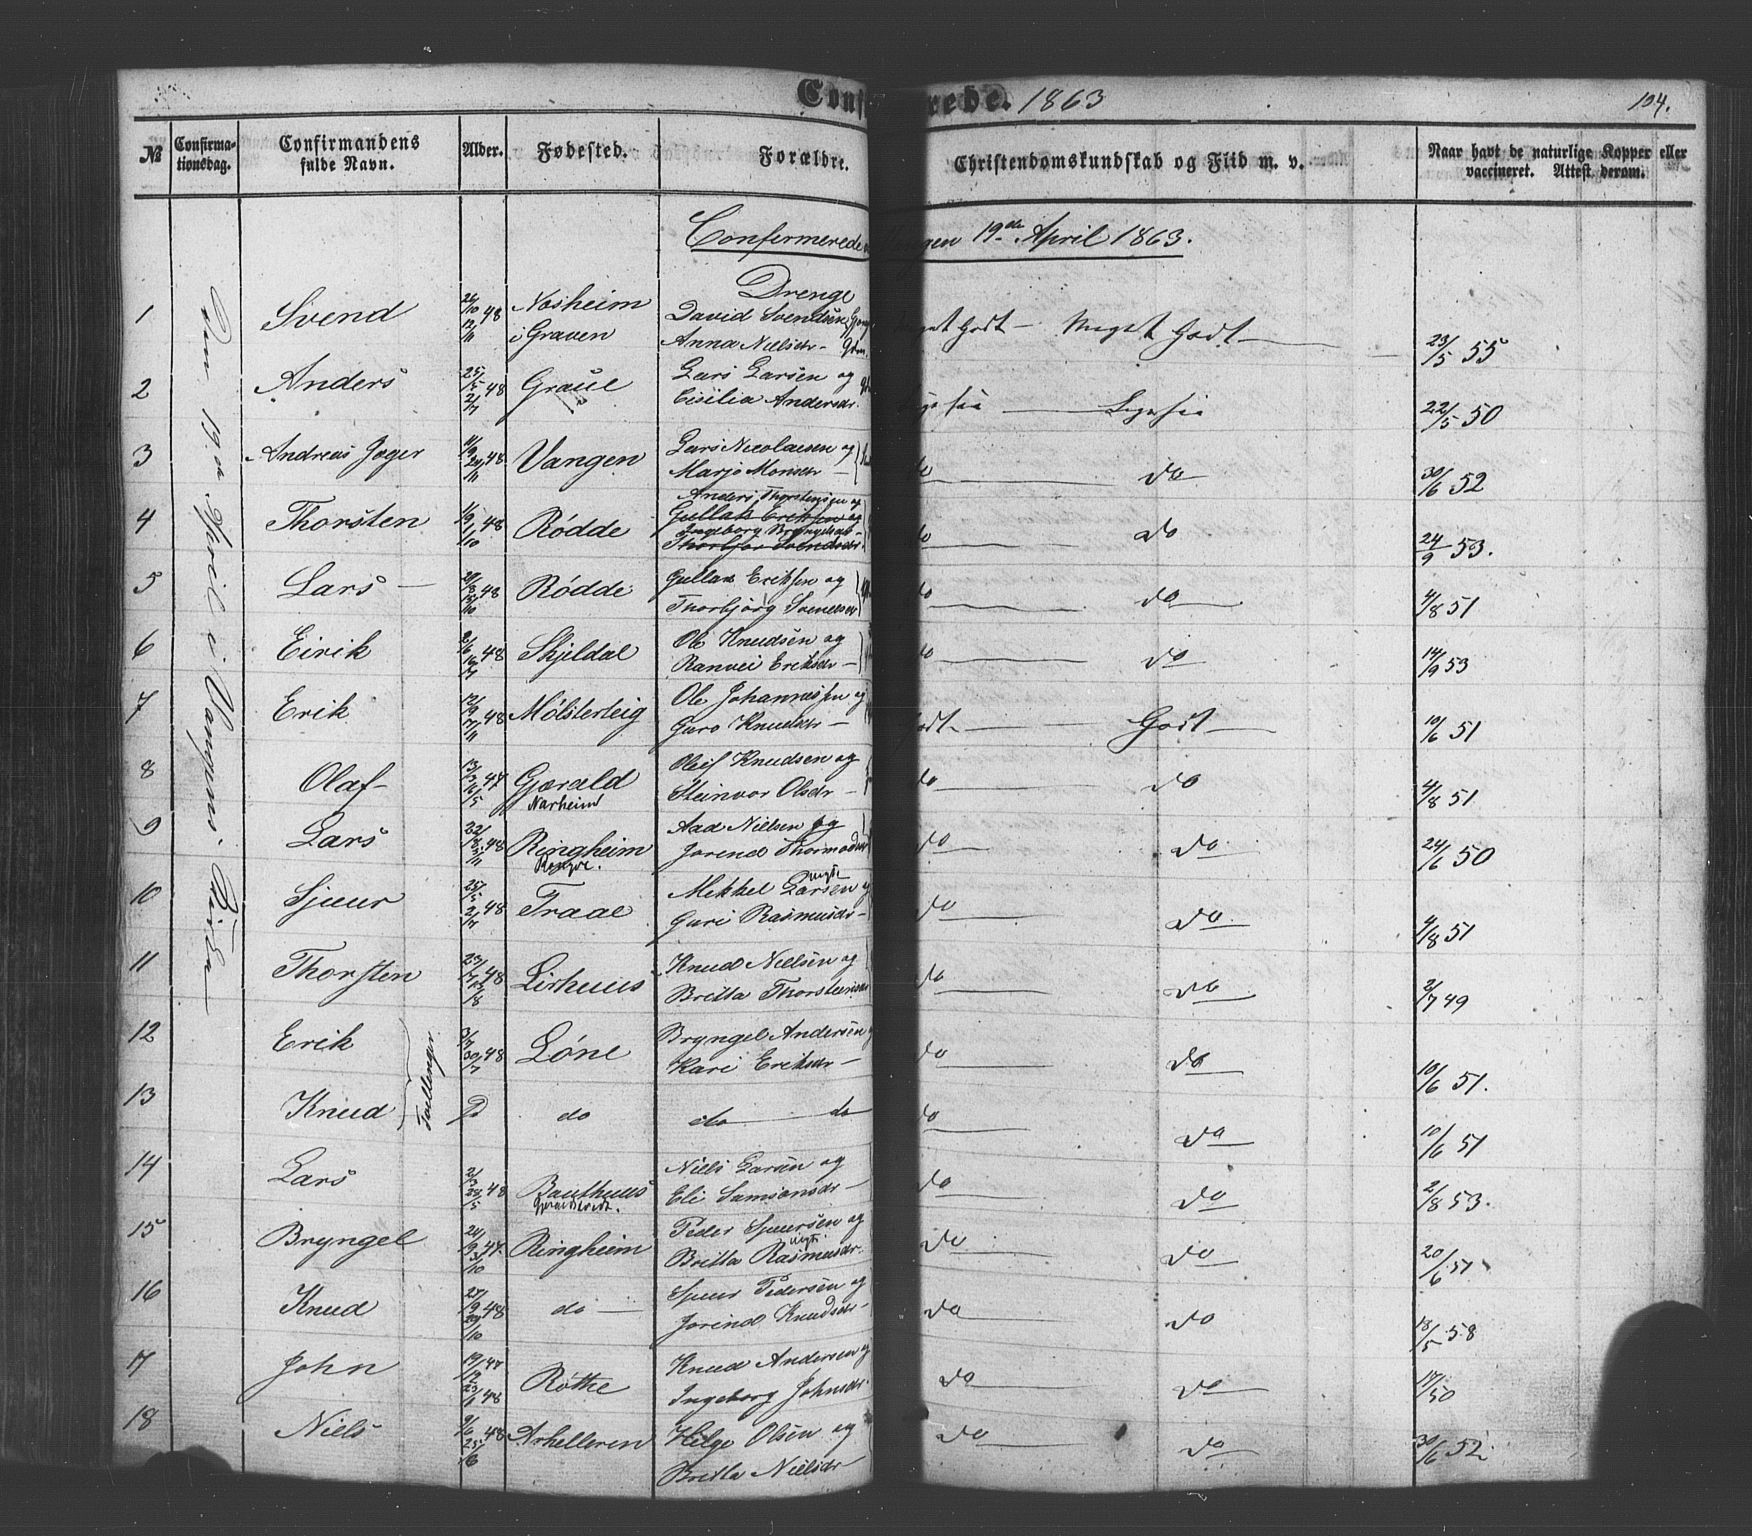 Conf rede. 1863 104.
№ Confirma-tionsdag. Confirmandens fulde Navn. Alder. Fødested. Forældre. Christendomskundskab og Flid m. v. Naar havt de naturlige Kopper eller vaccineret. Attest derom.
Confirmerede gen 19de April 1863.
Drenge
Den 19de April i Vangens Kirke
1 Svend 26/10 48 12/11 Nosheim i Graven David Svendsen Anna Nielsdr. Godt Meget Godt 23/5 55
2 Anders 25/5 48 2/7 Graue Lars Larsen og Cisilia Andersdr. 22/5 50
3 Andreas Jæger 11/9 48 24/11 Vangen Lars Nicolaisen og Marjo Monsdr do do 30/6 52
4 Thorsten 1/9 48 1/10 Rødde Anders Thorstensen og
Gullak Eriksen og
Ingeborg Bryngelsdr
Thorbjør Svendsdr. do do 24/9 53.
5 Lars 48 Rødde Gullak Eriksen og Thorbjørg Svendsdr do do 4/8 51
6 Eirik 2/6 48 16/7 Skjeldal Ole Knudsen og Ranvei Eriksdr do do 14/9 53
7 Erik 12/9 48 7/11 Mølsterteig Ole Johannessen og Guro Knudsdr Godt Godt 10/6 51
8 Olaf 13/3 47 Gjerald Oleif Knudsen og Steinvor Olsdr do do 4/8 51
Narheim
9 Lars 48 Ringheim Aad Nielsen og Jorend Thormodsdr do do 24/6 50
10 Sjuur 25/5 48 2/7 Traae Mikkel Larsen og Guri Rasmusdr do do 4/8 51
11 Thorsten 23/7 48 13/8 Lirhuus Knud Nielsen og Britta Thorsteinsdr do do 2/7 49
12 Erik 3/7 48 30/7 Løne Bryngel Andersen og Kari Eriksdr do do 10/6 51.
Tvillinger
13 Knud D do do do do do 10/6 51
14 Lars 2/3 48 28/5 Bauthuus Niels Larsen og Eli Samsonsdr do do 2/8 53.
15 Bryngel 24/9 47. 3/10 Ringheim Peder Sjuursen og Britta Rasmusdr. do do 20/6 51
16 Knud 27/9 48 29/10 do Sjuur Pedersen og Jorend Knudsdr do do 18/5 58
17 John 19/12 47 23/1 48 Røthe Knud Andersen og Ingeborg Johnsdr do do
18 Niels 9/6 48 25/6 Arhelleren Helge Olsen og Britta Nielsdr do do 30/6 52.